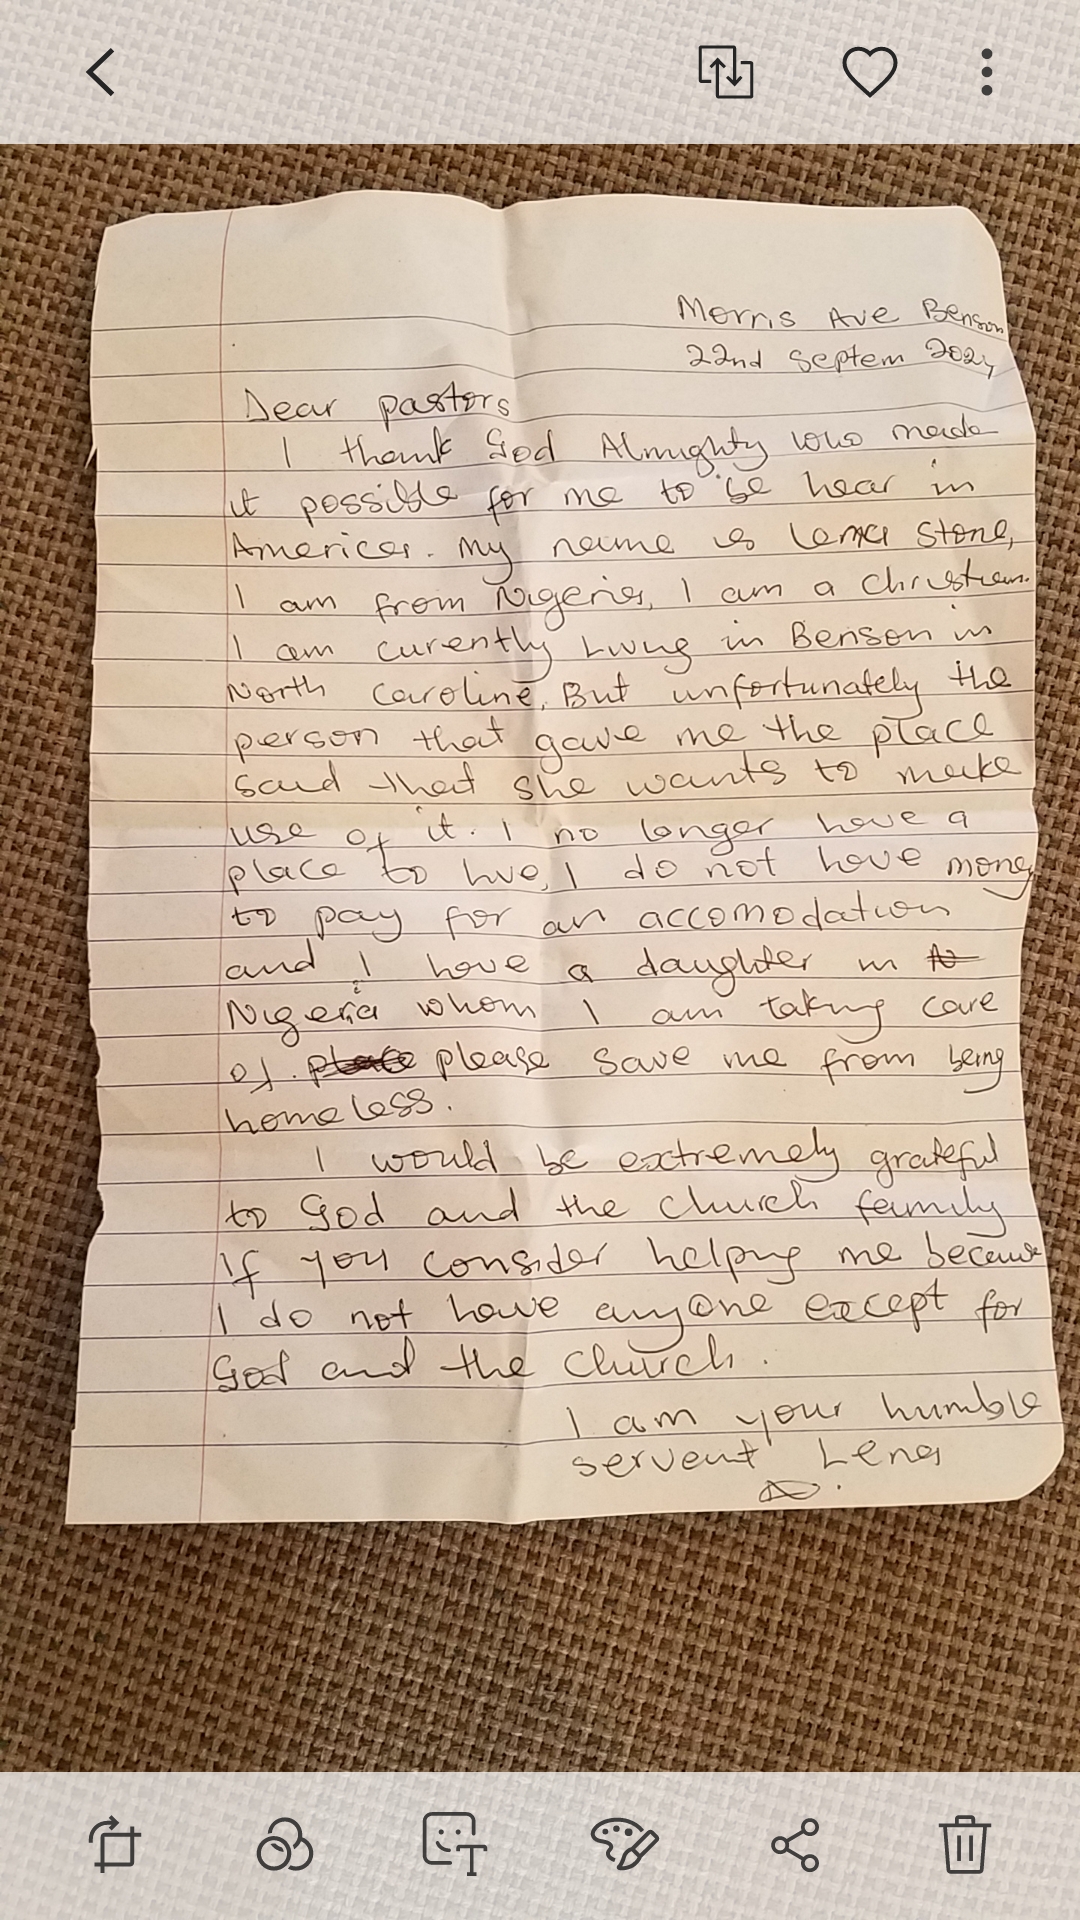 Morris Ave Benson
22nd Septem 2024
Dear pastors
I thank God Almighty who made
it possible for me to be hear in
America. My name is Lena Stone,
I am from Nigeria, I am a Christian.
I am curently Living in Benson in
North Caroline, But unfortunately the
person that gave me the place
said that she wants to make
use of it. I no longer have a
place to live, I do not have money
to pay for an accomodation
and I have a daughter in
Nigeria whom I am taking care
of. please save me from being
homeless.
I would be extremely grateful
to God and the church family
If you consider helping me because
I do not have anyone except for
God and the church.
I am your humble
servent Lena